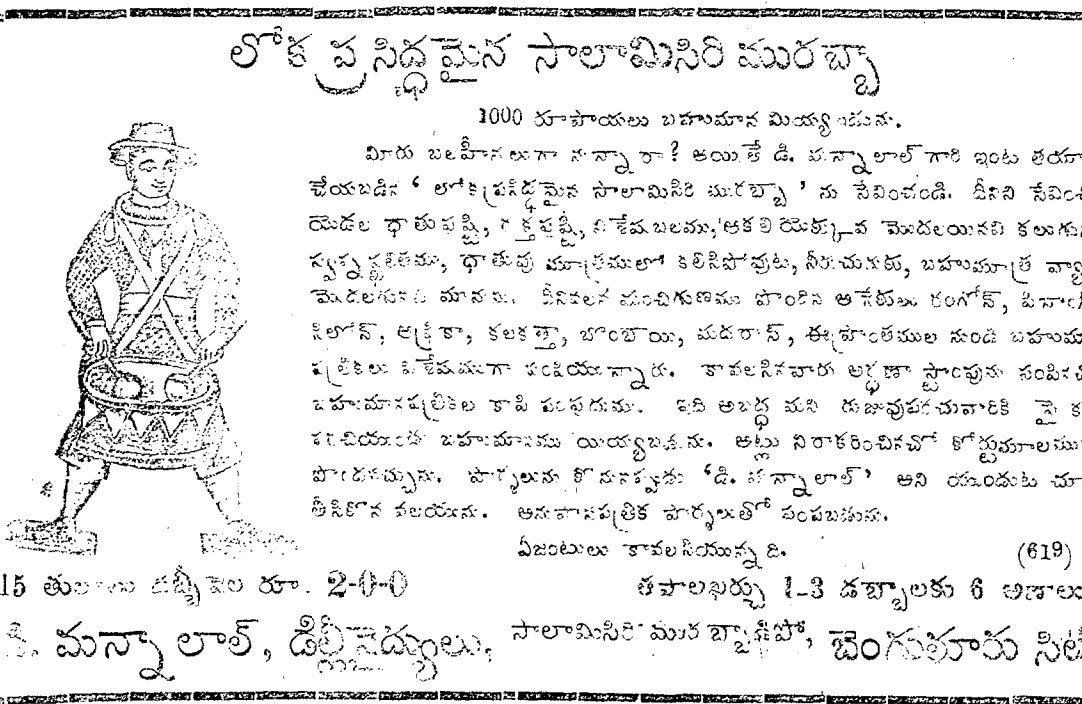 లోక ప్రసిద్ధమైన సాలామిసిరి మురబ్బా
1000 రూపాయలు బహుమాన మియ్యబడును.
మీరు బలహీనులుగా నున్నారా? అయితే డి. మన్నాలాల్ గారి ఇంట తయా
చేయబడిన ‘ లోకప్రసిద్ధమైన సాలామిసిరి మురబ్బా ’ ను సేవించండి. దీనిని సేవించి
యెడల ధాతుపుష్టి, రక్తపుష్టి, విశేషబలము, ఆకలి యెక్కువ మొదలయినవి కలుగున
స్వప్నస్ఖలితము, ధాతువు మూత్రములో కలిసిపోవుట, నీరుచురుకు, బహుమూత్ర వ్యా
మొదలగునవి మానును. దీనివలన మంచిగుణము పొందిన అనేకులు రంగోన్, పినాం
సిలోన్, ఆఫ్రికా, కలకత్తా, బొంబాయి, మదరాస్, ఈప్రాంతముల నుండి బహుమా
పత్రికలు విశేషముగా పంపియున్నారు. కావలసినవారు అర్ధణా స్టాంపును పంపిన
బహుమానపత్రికల కాపి పంపుదుము. ఇది అబద్ధ మని రుజువుపరచువారికి పై క
బహుమానము యియ్యబడును. అట్లు నిరాకరించినచో కోర్టుమూలము
పొందవచ్చును. పార్సలును కొనునప్పుడు ‘డి. మన్నాలాల్’ అని యుండుట చూ
తీసికొన వలయును. అనుపానపత్రిక పార్సలుతో పంపబడును.
ఏజంటులు కావలసియున్నది. (619)
15 తులాలు డబ్బీ వెల రూ. 2-0-0 తపాలఖర్చు 1-3 డబ్బాలకు 6 అణాలు
డి. మన్నాలాల్, డిల్లీవైద్యులు, సాలామిసిరి మురబ్బాడిపో, బెంగుళూరు సిటీ